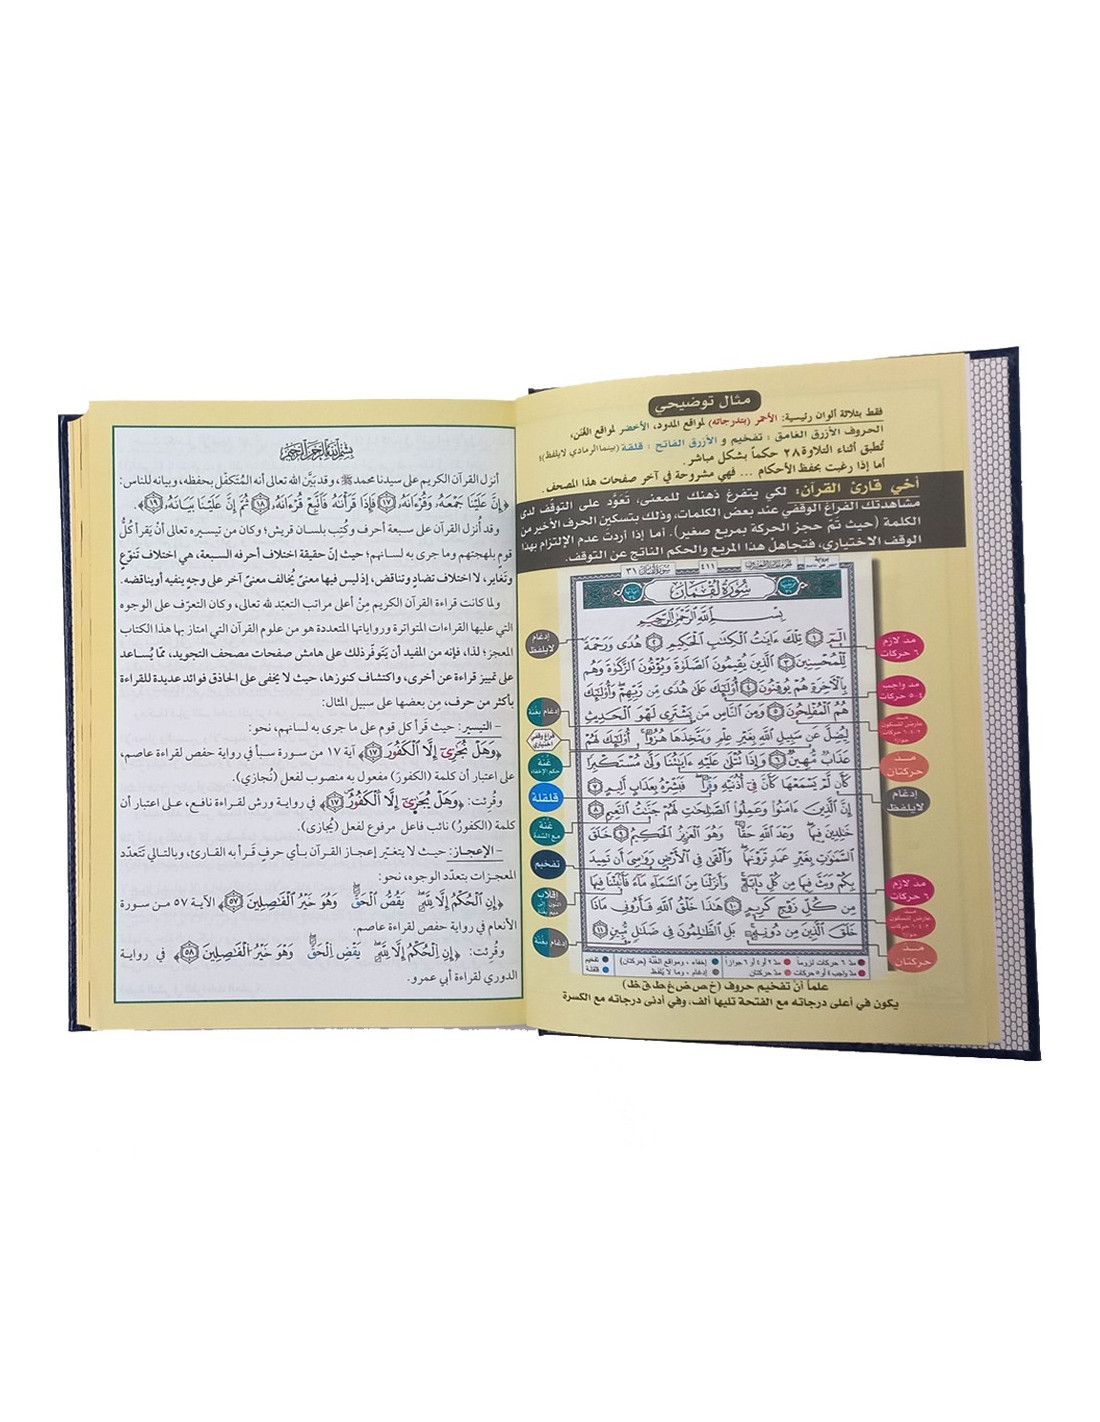 مثال توضيحي
فقط بثلاثة ألوان رئيسية: الأحمر (بتدرجاته) لمواقع المدود، الأخضر لمواقع الغنن،
الحروف الأزرق الغامق : تفخيم و الأزرق الفاتح : قلقة (بينما الرمادي لايلفظ)؛
تُطبق أثناء التلاوة ٢٨ حكماً بشكل مباشر.
أما إذا رغبت بحفظ الأحكام ... فهي مشروحة في آخر صفحات هذا المصحف.
أخي قارئ القرآن: لكي يتفرغ ذهنك للمعنى، تَعَوَّد على التوقّف لدى
مشاهدتك الفراغ الوقفي عند بعض الكلمات، وذلك بتسكين الحرف الأخير من
الكلمة (حيث تمّ حجز الحركة بمربع صغير). أما إذا أردت عدم الإلتزام بهذا
الوقف الاختياري، فتجاهلْ هذا المربع والحكم الناتج عن التوقف.
سورة لقمان ٣١
٤١١
سُورَةُ لُقْمَان
بِسْمِ اللَّهِ الرَّحْمَٰنِ الرَّحِيمِ
الٓمٓ ١ تِلْكَ ءَايَٰتُ الْكِتَٰبِ الْحَكِيمِ ٢ هُدًى وَرَحْمَةً
لِّلْمُحْسِنِينَ ٣ الَّذِينَ يُقِيمُونَ الصَّلَوٰةَ وَيُؤْتُونَ الزَّكَوٰةَ وَهُم
بِالْآخِرَةِ هُمْ يُوقِنُونَ ٤ أُولَٰٓئِكَ عَلَىٰ هُدًى مِّن رَّبِّهِمْ وَأُولَٰٓئِكَ
هُمُ الْمُفْلِحُونَ ٥ وَمِنَ النَّاسِ مَن يَشْتَرِى لَهْوَ الْحَدِيثِ
لِيُضِلَّ عَن سَبِيلِ اللَّهِ بِغَيْرِ عِلْمٍ وَيَتَّخِذَهَا هُزُوًا أُولَٰٓئِكَ لَهُمْ
عَذَابٌ مُّهِينٌ ٦ وَإِذَا تُتْلَىٰ عَلَيْهِ ءَايَٰتُنَا وَلَّىٰ مُسْتَكْبِرًا
كَأَن لَّمْ يَسْمَعْهَا كَأَنَّ فِىٓ أُذُنَيْهِ وَقْرًا فَبَشِّرْهُ بِعَذَابٍ أَلِيمٍ ٧
إِنَّ الَّذِينَ ءَامَنُوا وَعَمِلُوا الصَّٰلِحَٰتِ لَهُمْ جَنَّٰتُ النَّعِيمِ ٨
خَٰلِدِينَ فِيهَا وَعْدَ اللَّهِ حَقًّا وَهُوَ الْعَزِيزُ الْحَكِيمُ ٩ خَلَقَ
السَّمَٰوَٰتِ بِغَيْرِ عَمَدٍ تَرَوْنَهَا وَأَلْقَىٰ فِى الْأَرْضِ رَوَٰسِىَ أَن تَمِيدَ
بِكُمْ وَبَثَّ فِيهَا مِن كُلِّ دَآبَّةٍ وَأَنزَلْنَا مِنَ السَّمَآءِ مَآءً فَأَنۢبَتْنَا فِيهَا
مِن كُلِّ زَوْجٍ كَرِيمٍ ١٠ هَٰذَا خَلْقُ اللَّهِ فَأَرُونِى مَاذَا
خَلَقَ الَّذِينَ مِن دُونِهِ بَلِ الظَّٰلِمُونَ فِى ضَلَٰلٍ مُّبِينٍ ١١
مدّ لازم
٦ حركات
مدّ واجب
٤-٥ حركات
مدّ
عارض للسكون
٢-٤-٦ حركات
جوازاً
مدّ
حركتان
إدغام
لايلفظ
مدّ لازم
٦ حركات
مدّ
عارض للسكون
٢-٤-٦ حركات
جوازاً
مدّ
حركتان
إدغام
لايلفظ
إدغام بغنة
فراغ وقفي
اختياري
غُنّة
حكم الإخفاء
قلقلة
غُنّة
مع الشدة
تفخيم
إقلاب
النون إلى
ميم بغنة
إدغام بغنة
مدّ ٦ حركات لزوماً مدّ ٢ أو ٤ أو ٦ جوازاً إخفاء، ومواقع الغُنّة (حركتان) تفخيم
مدّ واجب ٤ أو ٥ حركات مدّ حركتان إدغام، وما لا يُلفَظ قلقلة
علماً أنّ تفخيم حروف (خ ص ض غ ط ق ظ)
يكون في أعلى درجاته مع الفتحة تليها ألف، وفي أدنى درجاته مع الكسرة
بِسْمِ اللَّهِ الرَّحْمَٰنِ الرَّحِيمِ
أنزل القرآن الكريم على سيدنا محمد ﷺ، وقد بيَّن الله تعالى أنه المُتَكفّل بحفظه، وبيانه للناس:
﴿إِنَّ عَلَيْنَا جَمْعَهُ وَقُرْءَانَهُ ١٧ فَإِذَا قَرَأْنَٰهُ فَاتَّبِعْ قُرْءَانَهُ ١٨ ثُمَّ إِنَّ عَلَيْنَا بَيَانَهُ ١٩﴾.
وقد أُنزل القرآن على سبعة أحرف وكُتِب بلسان قريش؛ وكان من تيسيره تعالى أنْ يَقرأ كلُّ
قومٍ بلهجتهم وما جرى به لسانهم؛ حيث إنّ حقيقة اختلاف أحرفه السبعة، هي اختلاف تَنَوّع
وتَغاير، لا اختلاف تضادٍ وتناقض، إذ ليس فيها معنىً يُخالف معنىً آخر على وجهٍ ينفيه أو يناقضه.
ولما كانت قراءة القرآن الكريم مِنْ أعلى مراتب التعبّد لله تعالى، وكان التعرّف على الوجوه
التي عليها القراءات المتواترة ورواياتها المتعددة هو من علوم القرآن التي امتاز بها هذا الكتاب
المعجز؛ لذا، فإنه من المفيد أن يَتَوفّر ذلك على هامش صفحات مصحف التجويد، ممّا يُساعد
على تمييز قراءة عن أخرى، واكتشاف كنوزها، حيث لا يخفى على الحاذق فوائد عديدة للقراءة
بأكثر من حرف، مِن بعضها على سبيل المثال:
– التيسير: حيث قَرأ كل قوم على ما جرى به لسانهم، نحو:
﴿وَهَلْ نُجَٰزِىٓ إِلَّا الْكَفُورَ ١٧﴾ آية ١٧ من سورة سبأ في رواية حفص لقراءة عاصم،
على اعتبار أن كلمة (الكفورَ) مفعول به منصوب لفعل (نُجازي).
وقُرئت: ﴿وَهَلْ يُجَٰزَىٰٓ إِلَّا الْكَفُورُ ١٧﴾ في رواية ورش لقراءة نافع، على اعتبار أن
كلمة (الكفورُ) نائب فاعل مرفوع لفعل (يُجازى).
– الإعجاز: حيث لا يتغيّر إعجاز القرآن بأي حرفٍ قَرأ به القارئ، وبالتالي تَتَعدّد
المعجزات بتعدّد الوجوه، نحو:
﴿إِنِ الْحُكْمُ إِلَّا لِلَّهِ يَقُصُّ الْحَقَّ وَهُوَ خَيْرُ الْفَٰصِلِينَ ٥٧﴾ الآية ٥٧ من سورة
الأنعام في رواية حفص لقراءة عاصم.
وقُرئت: ﴿إِنِ الْحُكْمُ إِلَّا لِلَّهِ يَقْضِ الْحَقَّ وَهُوَ خَيْرُ الْفَٰصِلِينَ ٥٨﴾ في رواية
الدوري لقراءة أبي عمرو.